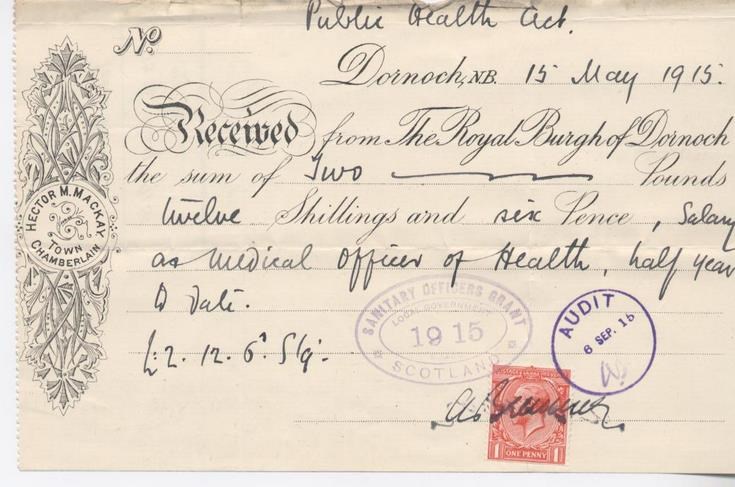 Public Health Act.
No.
Dornoch, N.B. 15 May 1915.
Received from The Royal Burgh of Dornoch
the sum of Two Pounds
twelve Shillings and six Pence, Salary
as Medical Officer of Health, half year
to date.
£2. 12. 6. Stg.
HECTOR M. MACKAY
TOWN
CHAMBERLAIN
SANITARY OFFICERS GRANT
LOCAL GOVERNMENT
1915
SCOTLAND
AUDIT
6 SEP. 15
1 ONE PENNY 1